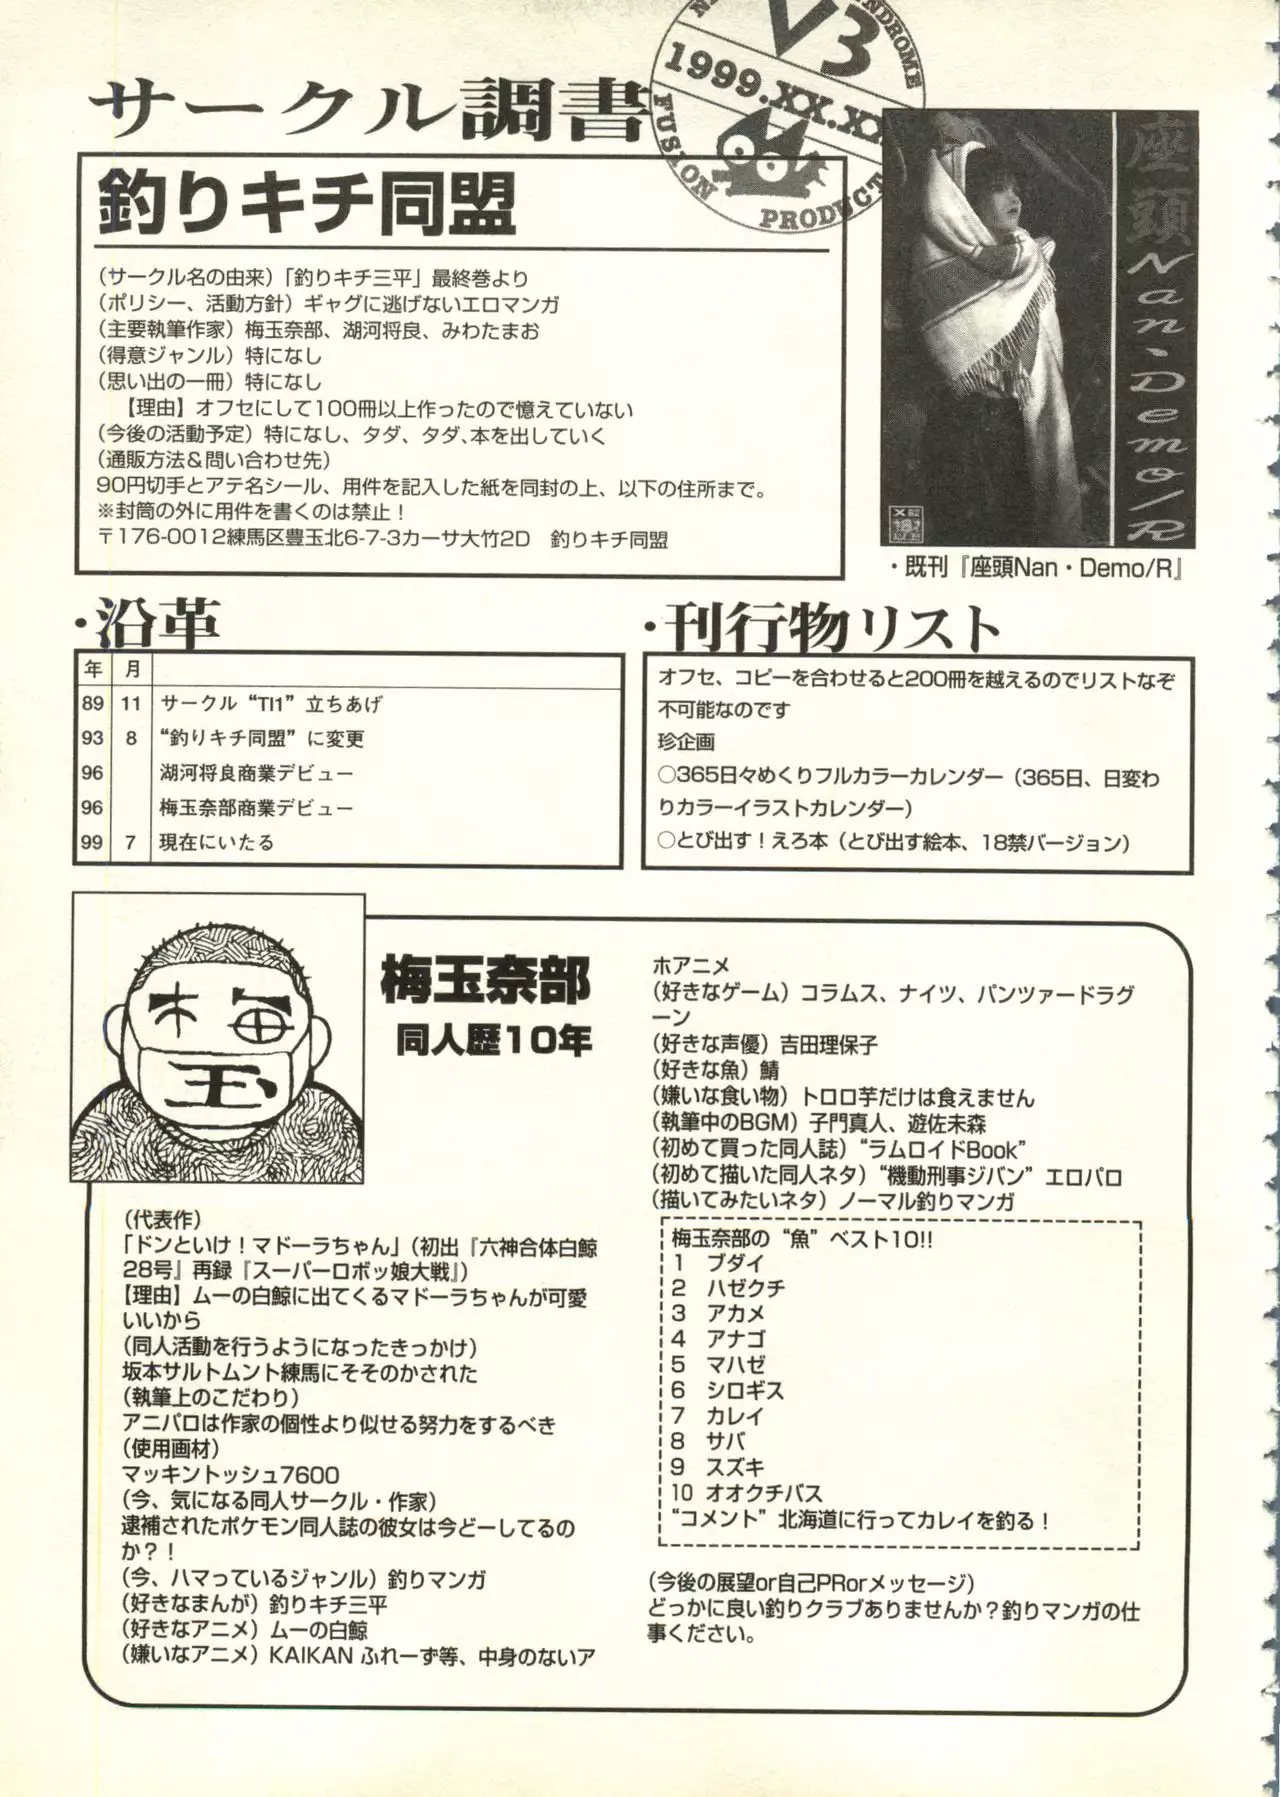 サークル調書
V3
1999.XX.XX
NDROME
FUSION PRODUCT
釣りキチ同盟
（サークル名の由来）「釣りキチ三平」最終巻より
（ポリシー、活動方針）ギャグに逃げないエロマンガ
（主要執筆作家）梅玉奈部、湖河将良、みわたまお
（得意ジャンル）特になし
（思い出の一冊）特になし
【理由】オフセにして100冊以上作ったので憶えていない
（今後の活動予定）特になし、タダ、タダ、本を出していく
（通販方法＆問い合わせ先）
90円切手とアテ名シール、用件を記入した紙を同封の上、以下の住所まで。
※封筒の外に用件を書くのは禁止！
〒176-0012練馬区豊玉北6-7-3カーサ大竹2D　釣りキチ同盟
座頭Nan・Demo/R
・既刊『座頭Nan・Demo/R』
・沿革
年 月
89 11 サークル“TI1”立ちあげ
93 8 “釣りキチ同盟”に変更
96 湖河将良商業デビュー
96 梅玉奈部商業デビュー
99 7 現在にいたる
・刊行物リスト
オフセ、コピーを合わせると200冊を越えるのでリストなぞ
不可能なのです
珍企画
○365日々めくりフルカラーカレンダー（365日、日変わ
りカラーイラストカレンダー）
○とび出す！えろ本（とび出す絵本、18禁バージョン）
梅
玉
梅玉奈部
同人歴10年
（代表作）
「ドンといけ！マドーラちゃん」（初出『六神合体白鯨
28号』再録『スーパーロボッ娘大戦』）
【理由】ムーの白鯨に出てくるマドーラちゃんが可愛
いいから
（同人活動を行うようになったきっかけ）
坂本サルトムント練馬にそそのかされた
（執筆上のこだわり）
アニパロは作家の個性より似せる努力をするべき
（使用画材）
マッキントッシュ7600
（今、気になる同人サークル・作家）
逮補されたポケモン同人誌の彼女は今どーしてるの
か？！
（今、ハマっているジャンル）釣りマンガ
（好きなまんが）釣りキチ三平
（好きなアニメ）ムーの白鯨
（嫌いなアニメ）KAIKAN ふれーず等、中身のないア
ホアニメ
（好きなゲーム）コラムス、ナイツ、パンツァードラグ
ーン
（好きな声優）吉田理保子
（好きな魚）鯖
（嫌いな食い物）トロロ芋だけは食えません
（執筆中のBGM）子門真人、遊佐未森
（初めて買った同人誌）“ラムロイドBook”
（初めて描いた同人ネタ）“機動刑事ジバン”エロパロ
（描いてみたいネタ）ノーマル釣りマンガ
梅玉奈部の“魚”ベスト10!!
1　ブダイ
2　ハゼクチ
3　アカメ
4　アナゴ
5　マハゼ
6　シロギス
7　カレイ
8　サバ
9　スズキ
10　オオクチバス
“コメント”北海道に行ってカレイを釣る！
（今後の展望or自己PRorメッセージ）
どっかに良い釣りクラブありませんか？釣りマンガの仕
事ください。